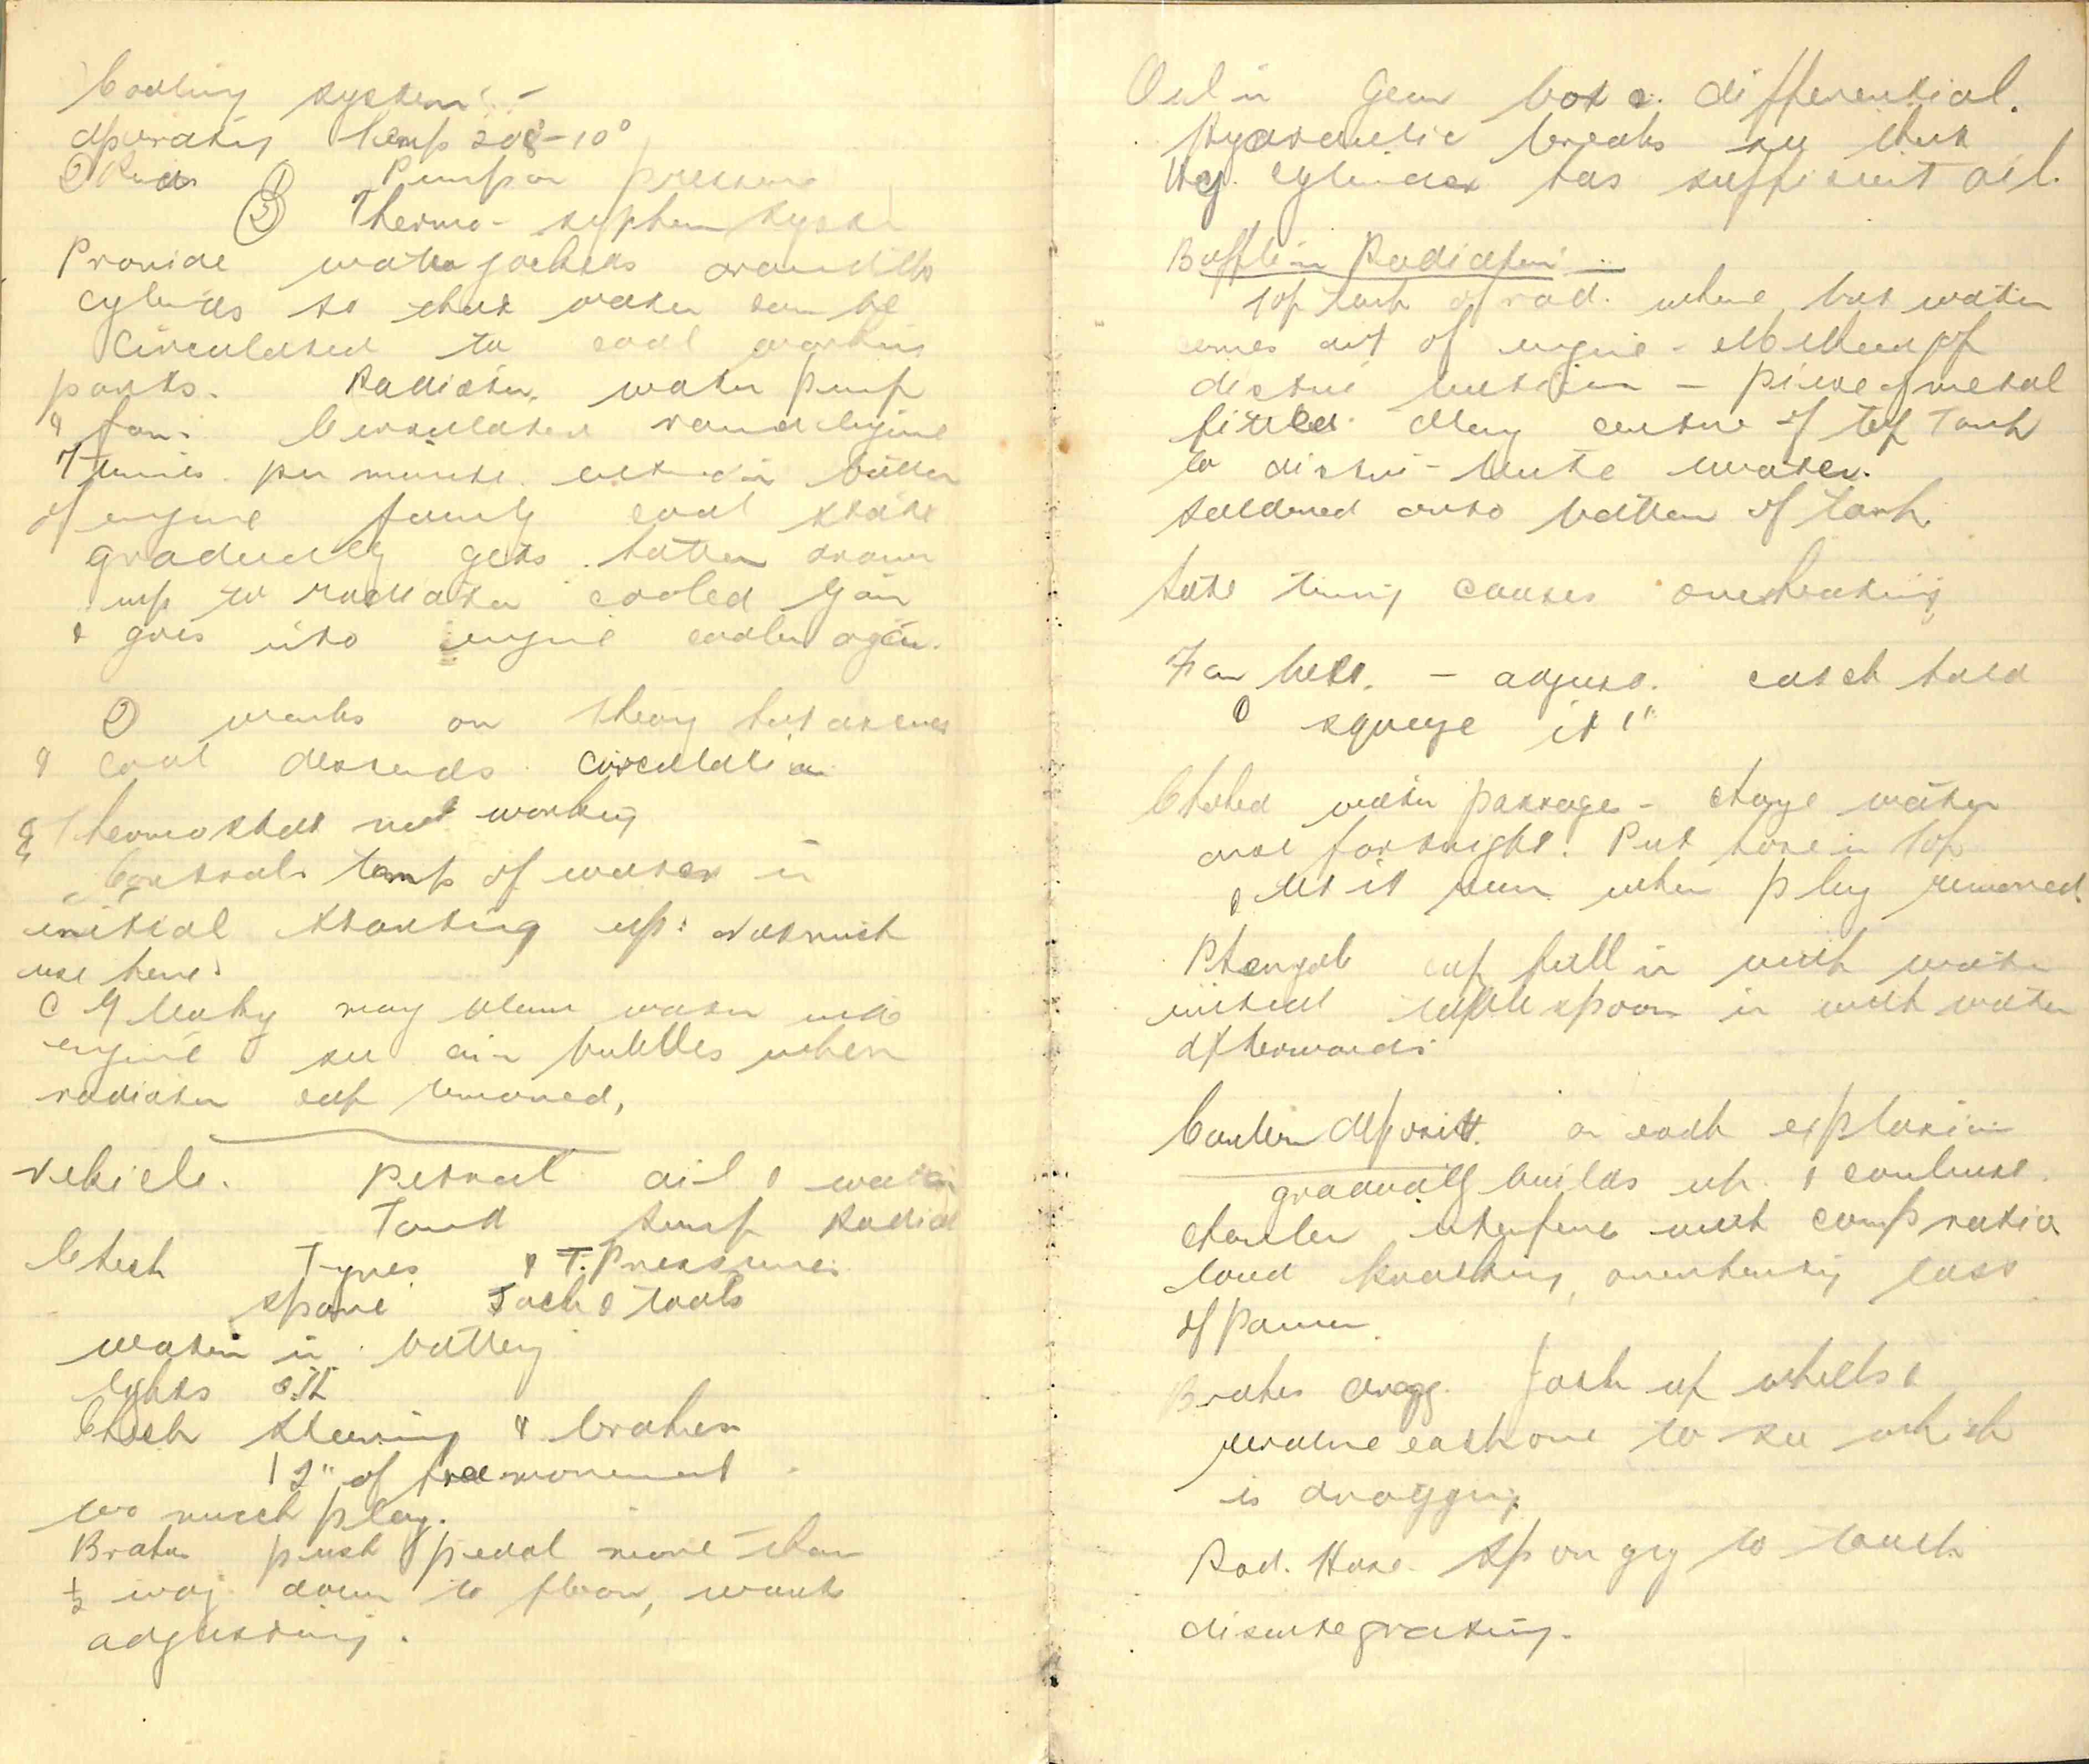 Cooling system: -
Operating temp 208°-10°
② Kinds ① Pump or pressure
② Thermo-syphon system
Provide water jackets around the
cylinders so that water can be
circulated to cool working
parts. Radiator, water pump
& fan. Circulated round engine
7 times per minute. in bottom
of engine fairly cool state
gradually gets hotter drawn
up to radiator cooled again
& goes into engine cooler again.
② works on theory hot ascends
& cool descends circulation
& Thermostat not working
Controls temp of water in
initial starting up: Not much
use here.
C G leaky may blow water into
engine see air bubbles when
radiator cap removed,
Vehicle. Petrol oil & water in
Tank sump Radiat
Check Tyres & T. Pressures
spare Jack & tools
water in battery
lights
Check steering & brakes
1 2" of free movement
too much play.
Brakes push pedal more than
½ way down to floor, wants
adjusting.
Oil in Gear box & differential.
Hydraulic breaks see that
Hy. cylinder has sufficient oil.
Baffle in Radiator: -
Top tank of rad. where hot water
comes out of engine - method of
distribution - piece of metal
fitted along centre of top Tank
to distri-bute water.
soldered onto bottom of tank.
Late timing causes overheating
Fan belt. - adjust. catch hold
& squeeze it 1"
Choked water passage - change water
once fortnight. Put hose in top
& let it run when plug removed.
cup full in with water
initial spoon in with water
afterwards.
Carbon deposit. on each explosion
gradually builds up & combust.
chamber interfere with comp ratio
loud knocking, overheating loss
of Power.
Brakes dragg. Jack up wheels &
revolve each one to see which
is dragging
Rad. Hose. Spongy to touch
disintegrating.